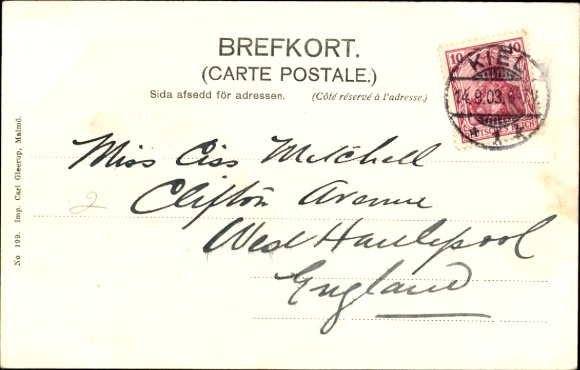 BREFKORT.
(CARTE POSTALE.)
Sida afsedd för adressen. (Côté réservé à l'adresse.)
10 10
KIEL
14.9.03.
DEUTSCHES REICH
Miss Ciss Mitchell
2
Clifton Avenue
West Hartlepool
England
No 199. Imp. Carl Gleerup, Malmö.